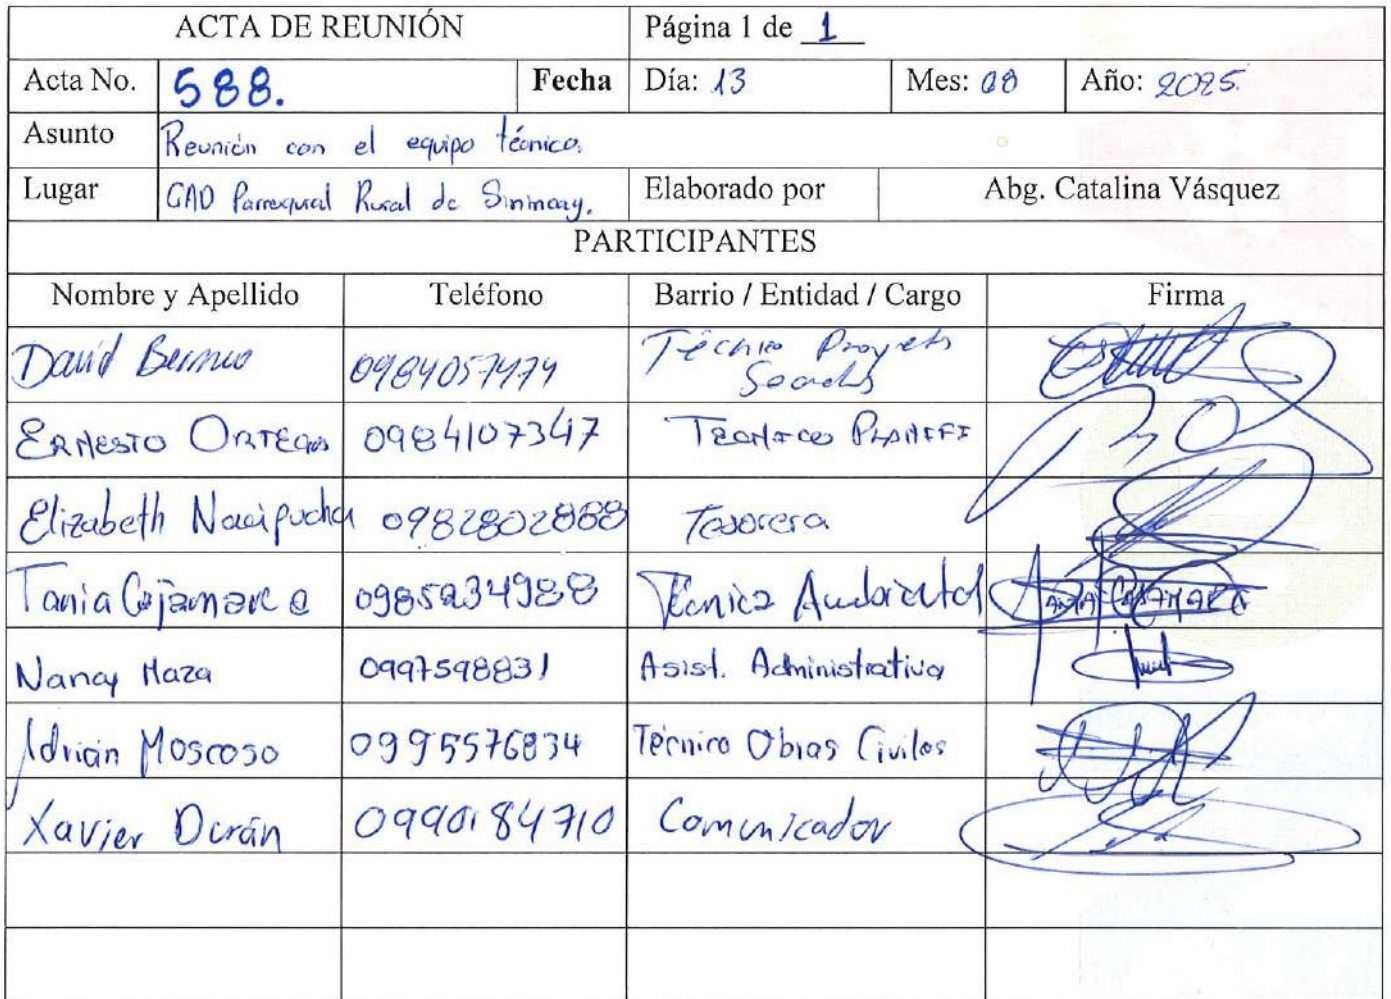 ACTA DE REUNIÓN Página 1 de 1
Acta No. 588. Fecha Día: 13 Mes: 08 Año: 2025.
Asunto Reunión con el equipo técnico.
Lugar GAD Parroquial Rural de Sinincay. Elaborado por Abg. Catalina Vásquez
PARTICIPANTES
Nombre y Apellido Teléfono Barrio / Entidad / Cargo Firma
David Bermeo 0984057474 Técnico Proyectos
Sociales
ERNESTO ORTEGA 0984107347 TECNICO PLANIFI
Elizabeth Naucipucha 0982802888 Tesorera
Tania Cajamarca 0985234988 Técnica Ambiental TANIA CAJAMARCA
Nancy Maza 0997598831 Asist. Administrativa
Adrián Moscoso 0995576834 Técnico Obras Civiles
Xavier Durán 0990184710 Comunicador